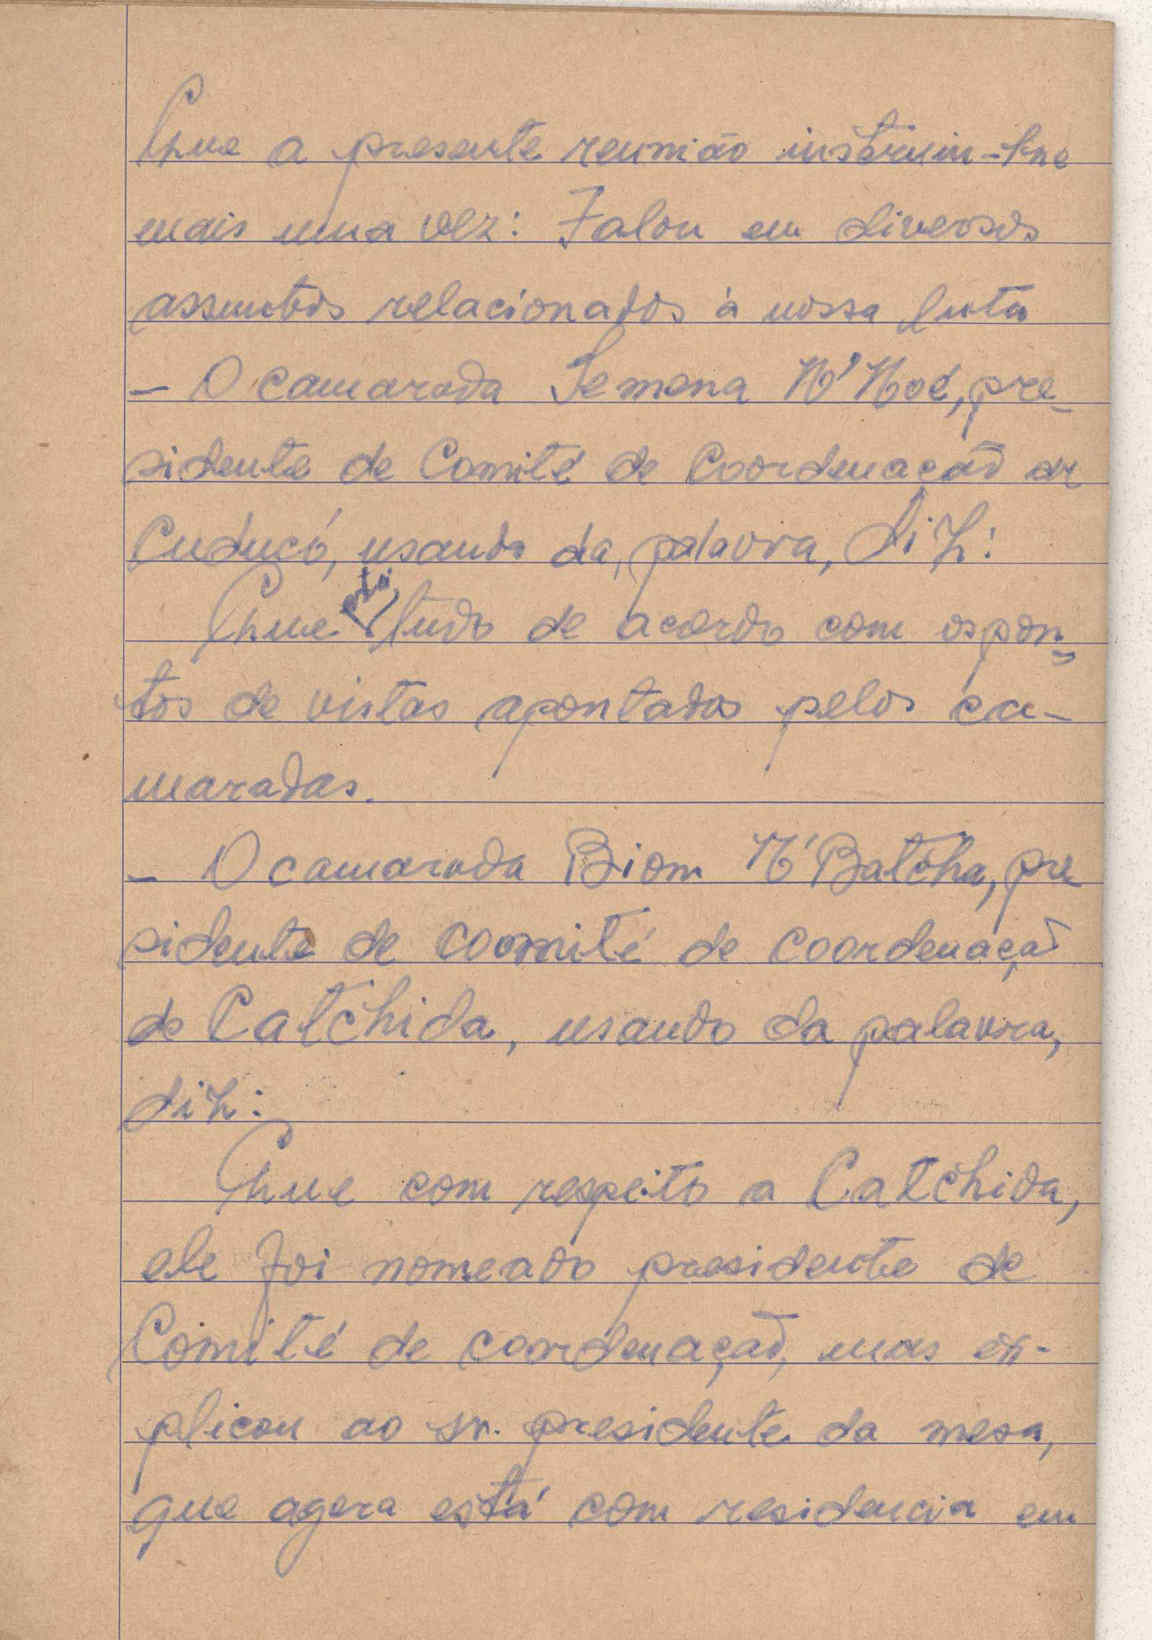 Que a presente reunião instruiu-lhe
mais uma vez: Falou em diversos
assuntos relacionados à nossa luta
– O camarada Semena N'Noé, pre-
sidente de Comité de Coordenação de
Cuducó, usando da palavra, diz:
Que está tudo de acordo com os pon-
tos de vistas apontados pelos ca-
maradas.
– O camarada Biom N'Batcha, pre
sidente de coomité de coordenação
de Catchida, usando da palavra,
diz:
Que com respeito a Catchida,
ele foi nomeado presidente de
Comité de cordenação, mas ex-
plicou ao sr. presidente da mesa,
que agora está com residencia em